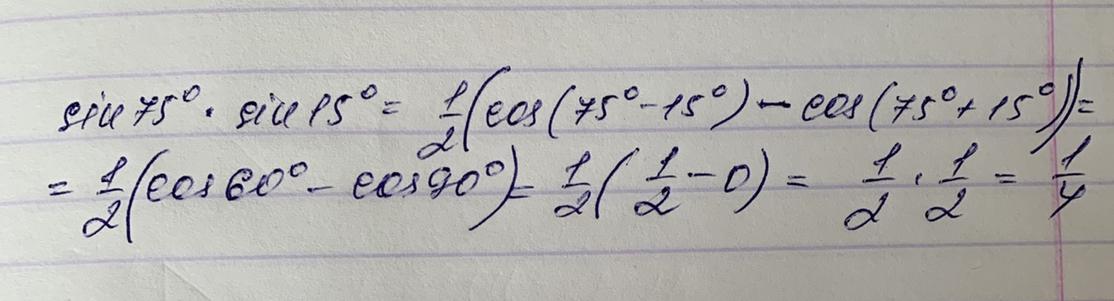 sin 75° · sin 15° = 1/2 (cos(75° - 15°) - cos(75° + 15°)) =
= 1/2 (cos 60° - cos 90°) = 1/2 (1/2 - 0) = 1/2 · 1/2 = 1/4